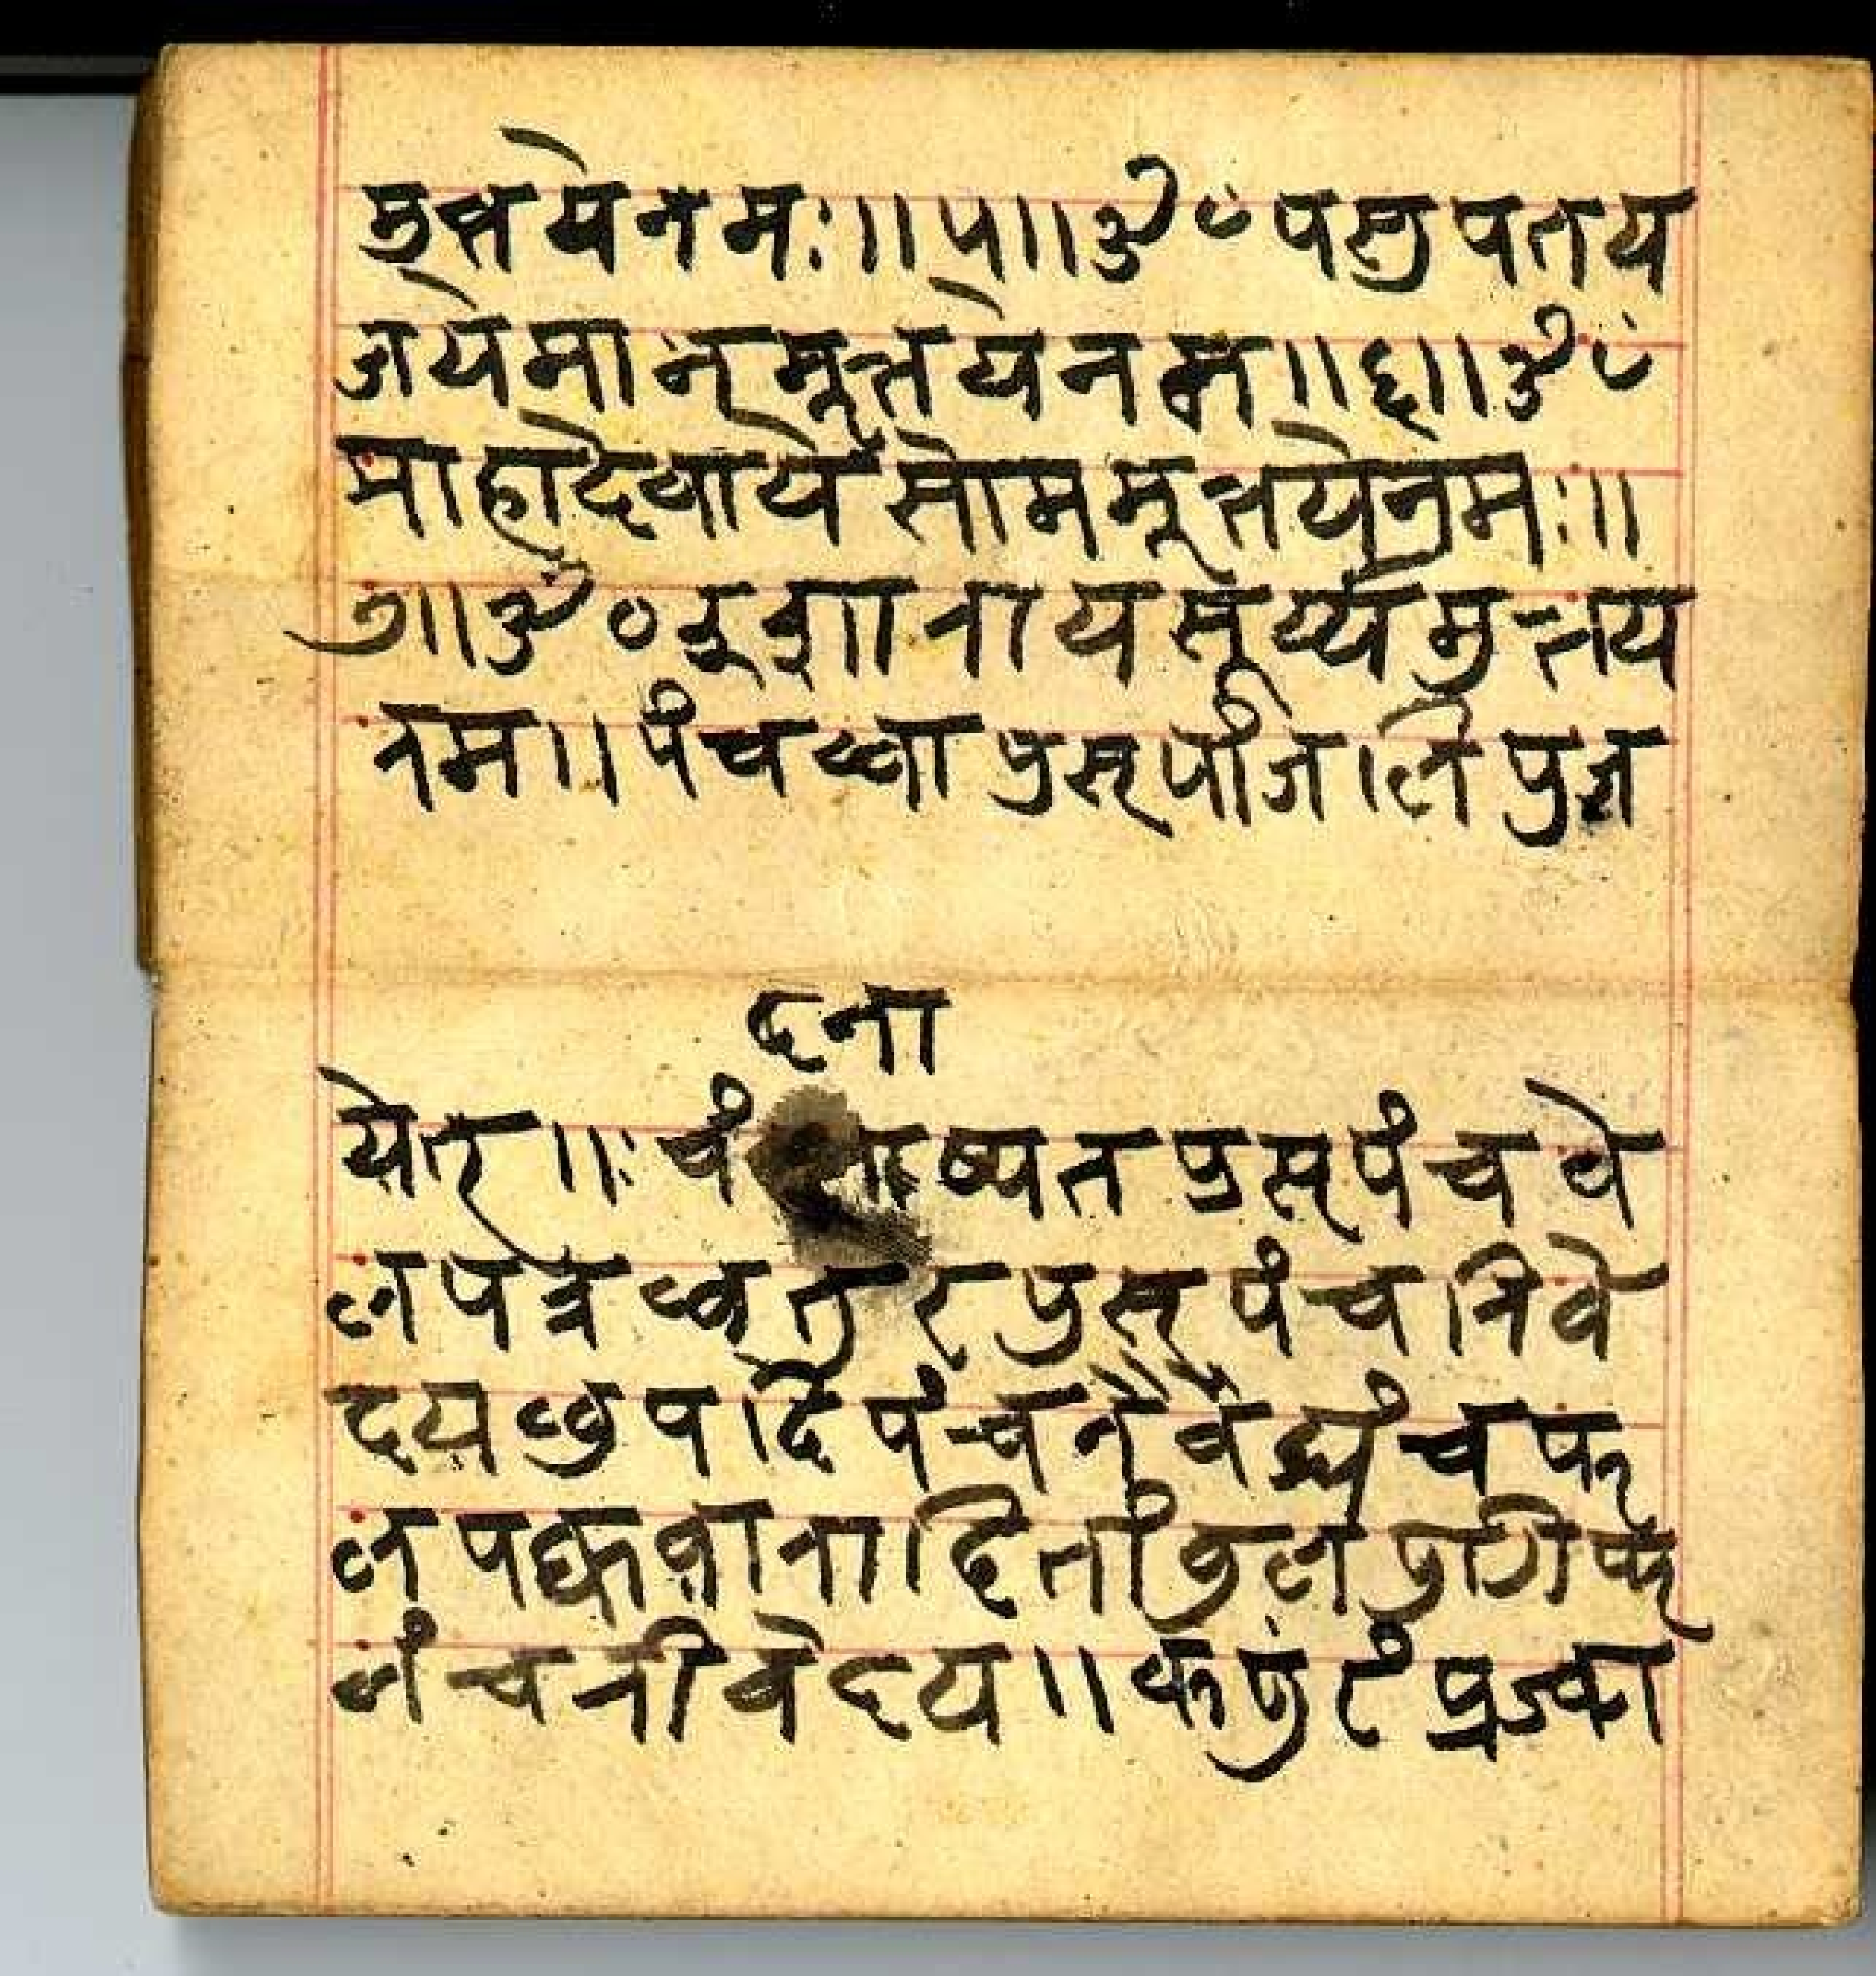 मुत्तयेनमः॥५॥ॐ पसुपतय
जयेमानमूर्त्तयेनम॥६॥ॐ
माहादेवाये सोममूर्त्तयेनमः॥
७॥ॐ ईशानाय सूर्य्य मुर्त्तय
नम॥पंचध्वा पुस्पांजलि पुज
दना
येत्॥ चं ष्यत पुस् पंच वे
लपत्र ध्वतुर पुस् पंच निवे
दय छुपदि पंच नैवेद्यं च फ
ल पक्वानादि तांवुल पुगीफ
लं च नीवेदय॥ कपुरं प्रज्वा